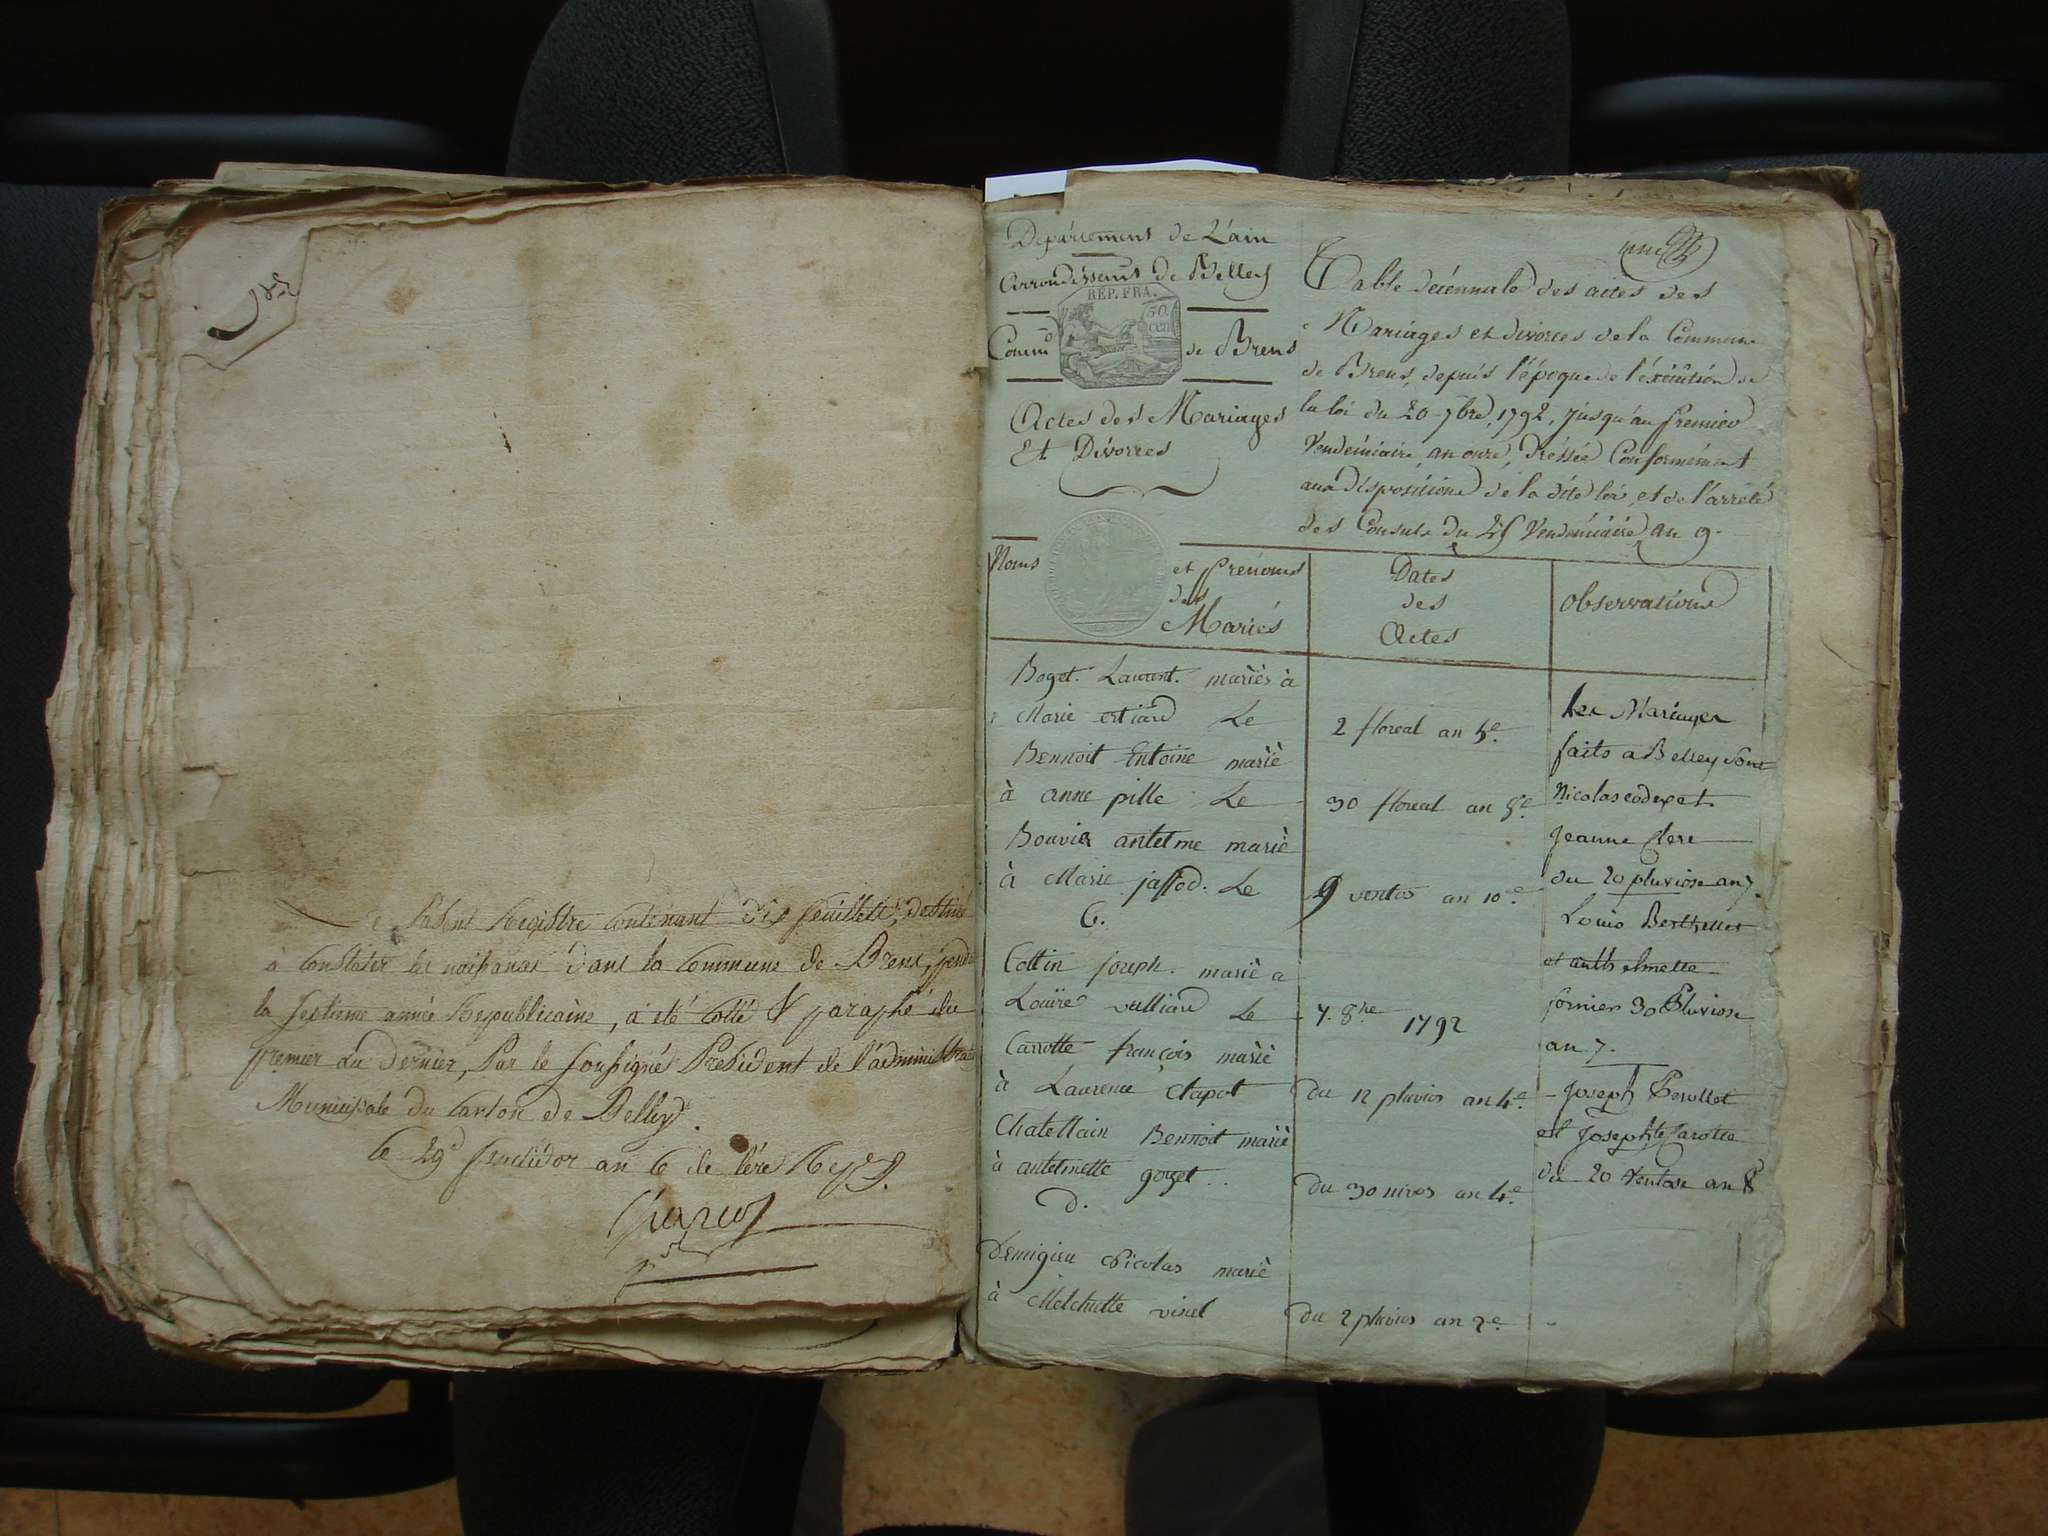 Le présent Registre contenant dix feuillets, destiné
à constater les naissances dans la Commune de Brens, pendt
la septieme année Republicaine, a été cotté & paraphé du
premier au dernier, Par le soussigné President de l'administrat
Municipale du canton de Belley.
le 29 fructidor an 6 de l'ère Rep
Departement de L'ain
Arrondissemt de Belley
REP. FRA.
50
cen
Commu de Brens
Actes des Mariages
Et Divorces
Table décennale des actes des
Mariages et divorces de la Commune
de Brens, depuis l'époque de l'éxécution de
la loi du 20 7bre, 1792, jusqu'au premier
Vendémiaire an onze, dréssée Conformément
aux dispositions de la dite loi, et de l'arrêté
des Consuls du 25 Vendémiaire an 9.
Noms et Prénoms
des
Mariés
Dates
des
Actes
Observations
Boget. Laurent. mariés à
Marie ertiard Le
2 floreal an 5e.
Bennoit Entoine marié
à anne pille Le
30 floreal an 8e
Bouvier antelme marié
à Marie jassod. Le
9 ventos an 10e
C.
Cottin joseph. marié a
Louise vulliard Le
7. 8bre 1792
Carrotte françois marié
à Laurence Clapot
du 12 pluvios an 4e.
Chatellain Bennoit marié
à antelmette goyet
du 30 nivos an 4e.
D.
Demigieu Nicolas marié
à Melchutte vinel
du 2 pluvios an 2e
Les Mariages
faits a Belley Sont
Nicolas codex et
Jeanne Clerc
du 20 pluviose an 7.
Louis Berthelier
et anthelmette
fornier 30 Pluviose
an 7.
Joseph Perollet
et Josephte Carotte
du 20 Ventose an 8